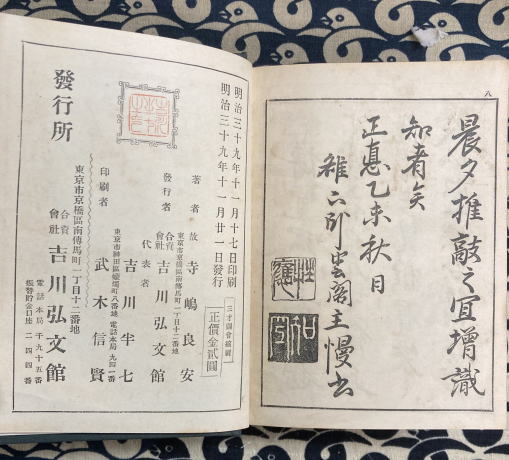 八
晨夕推敲之冝增識
知者矣
正悳乙未秋日
雒下卧雲閣主慢書
明治三十九年十一月十七日印刷
明治三十九年十一月廿一日發行
三才圖會縮輯
正價金貳圓
著者 故 寺嶋良安
東京市京橋區南傳馬町一丁目十二番地
發行者 合資會社 吉川弘文館
代表者 吉川半七
東京市神田區蠟燭町八番地 電話本局 九四一番
印刷者 武木信賢
東京市京橋區南傳馬町一丁目十二番地
發行所 合資會社 吉川弘文館
電話本局 千九十五番
振替貯金口座 二四四番